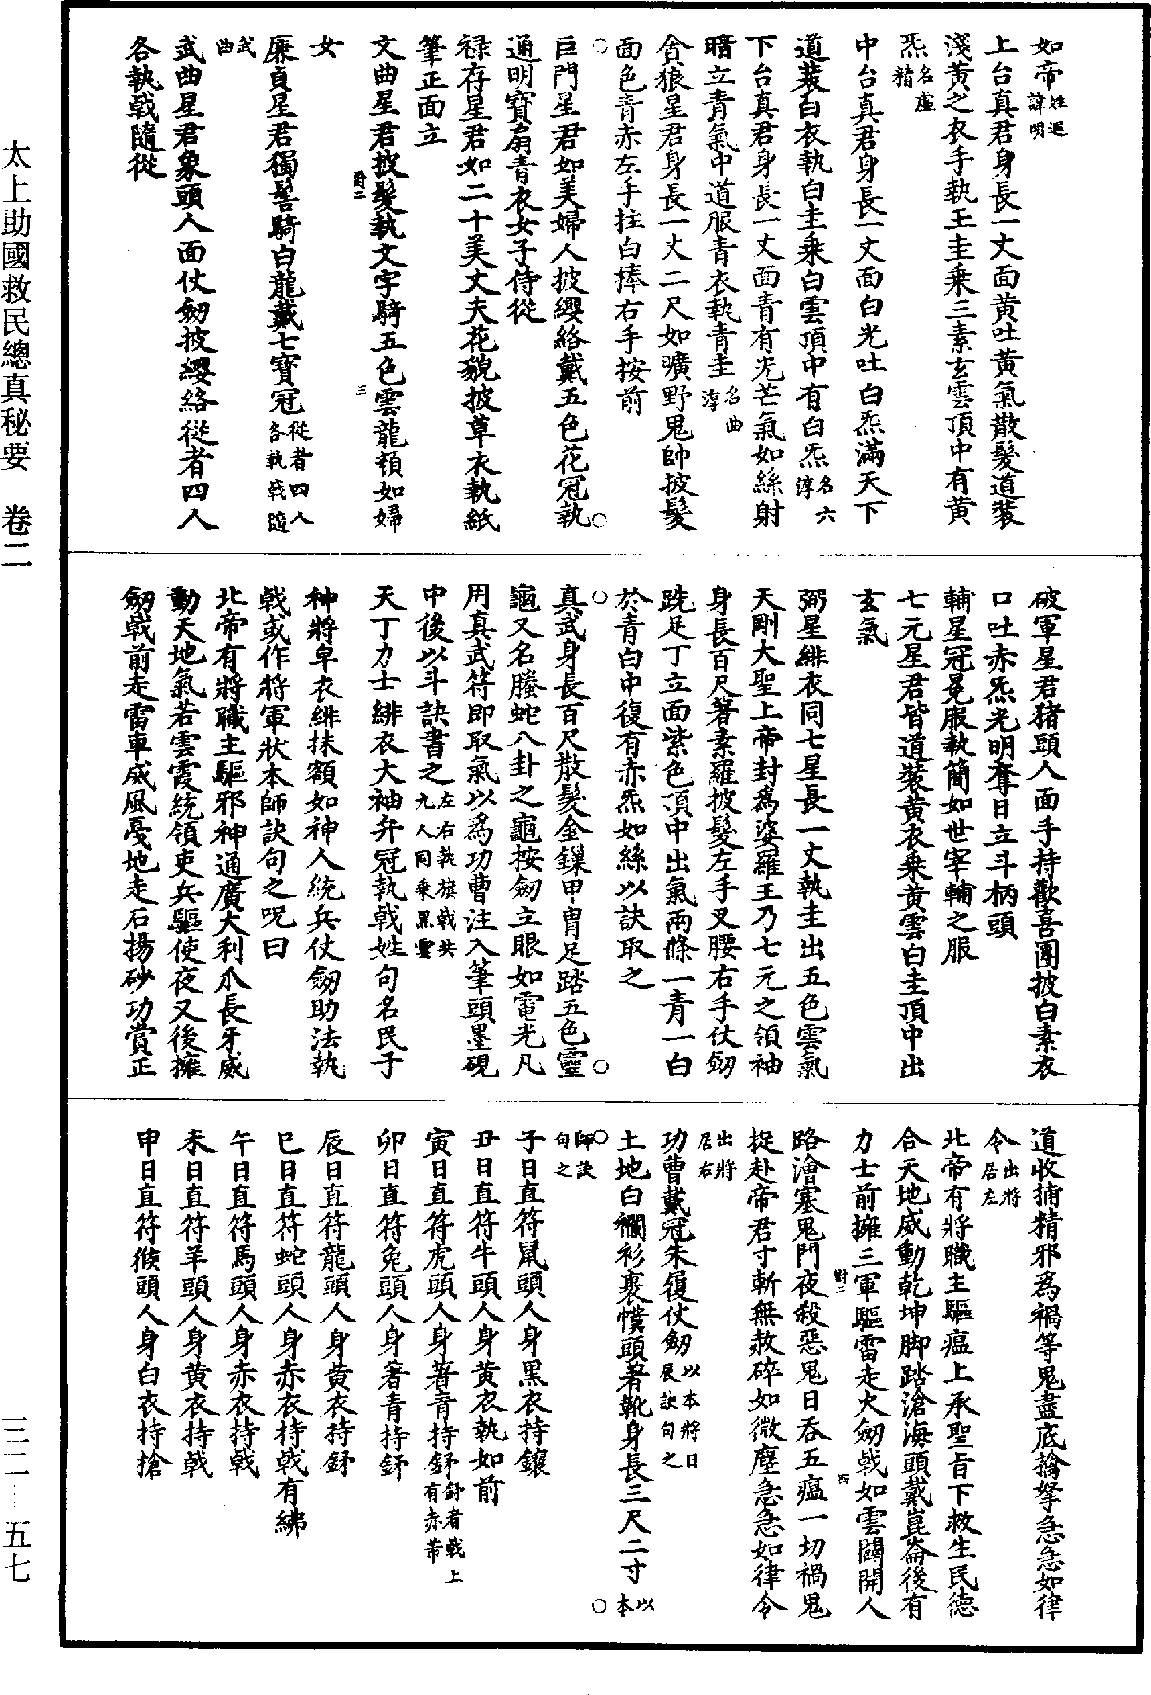 如帝姓通諱明
上台真君身長一丈面黄吐黄氣散髮道裝
淺黄之衣手執玉圭乘三素玄雲頂中有黄
炁名虚精
中台真君身長一丈面白光吐白炁滿天下
道裝白衣執白圭乘白雲頂中有白炁名六淳
下台真君身長一丈面青有光芒氣如絲射
暗立青氣中道服青衣執青圭名曲淳
貪狼星君身長一丈二尺如曠野鬼帥披髮
面色青赤左手拄白棒右手按前
巨門星君如美婦人披纓絡戴五色花冠執
通明寶扇青衣女子侍從
禄存星君如二十美丈夫花貌披草衣執紙
筆正面立
文曲星君披髮執文字騎五色雲龍頟如婦
女
廉貞星君獨髻騎白龍戴七寶冠從者四人各執戟隨武曲
武曲星君象頭人面仗劒披纓絡從者四人
各執戟隨從
破軍星君猪頭人面手持歡喜團披白素衣
口吐赤炁光明奪日立斗柄頭
輔星冠冕服執簡如世宰輔之服
七元星君皆道裝黄衣乘黄雲白圭頂中出
玄氣
弼星緋衣同七星長一丈執圭出五色雲氣
天剛大聖上帝封爲婆羅王乃七元之領袖
身長百尺著素羅披髮左手叉腰右手仗劒
跣足丁立面紫色頂中出氣兩條一青一白
於青白中復有赤炁如絲以訣取之
真武身長百尺散髮金鏁甲冑足踏五色靈
龜又名螣蛇八卦之龜按劒立眼如電光凡
用真武符即取氣以爲功曹注入筆頭墨硯
中後以斗訣書之左右執旗戟共九人同乘黑雲
天丁力士緋衣大袖弁冠執戟姓句名民子
神將皁衣緋抹額如神人統兵仗劒助法執
戟或作將軍狀本師訣句之呪曰
北帝有將職主驅邪神通廣大利爪長牙威
動天地氣若雲霞統領吏兵驅使夜叉後擁
劒戟前走雷車威風戞地走石揚砂功賞正
道收捕精邪爲禍等鬼盡底擒拏急急如律
令出將居左
北帝有將職主驅瘟上承聖旨下救生民德
合天地威動乾坤脚踏滄海頭戴崑崙後有
力士前擁三軍驅雷走火劒戟如雲闢開人
路澮塞鬼門夜殺惡鬼日吞五瘟一切禍鬼
捉赴帝君寸斬無赦碎如微塵急急如律令
出將居右
功曹戴冠朱履仗劒以本將日辰訣句之
土地白襴衫裹幞頭著靴身長三尺二寸以本師訣句之
子日直符鼠頭人身黑衣持鑹
丑日直符牛頭人身黄衣執如前
寅日直符虎頭人身著青持釾釾者戟上有赤帶
卯日直符兔頭人身著青持釾
辰日直符龍頭人身黄衣持釾
巳日直符蛇頭人身赤衣持戟有紼
午日直符馬頭人身赤衣持戟
未日直符羊頭人身黄衣持戟
申日直符猴頭人身白衣持搶
太上助國救民總真秘要 卷二
三二—五七